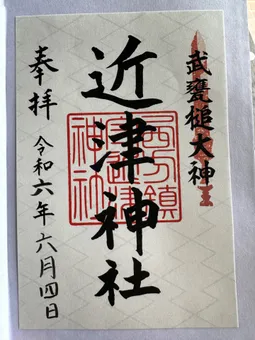 武甕槌大神
近津神社
奉拝
令和六年六月四日